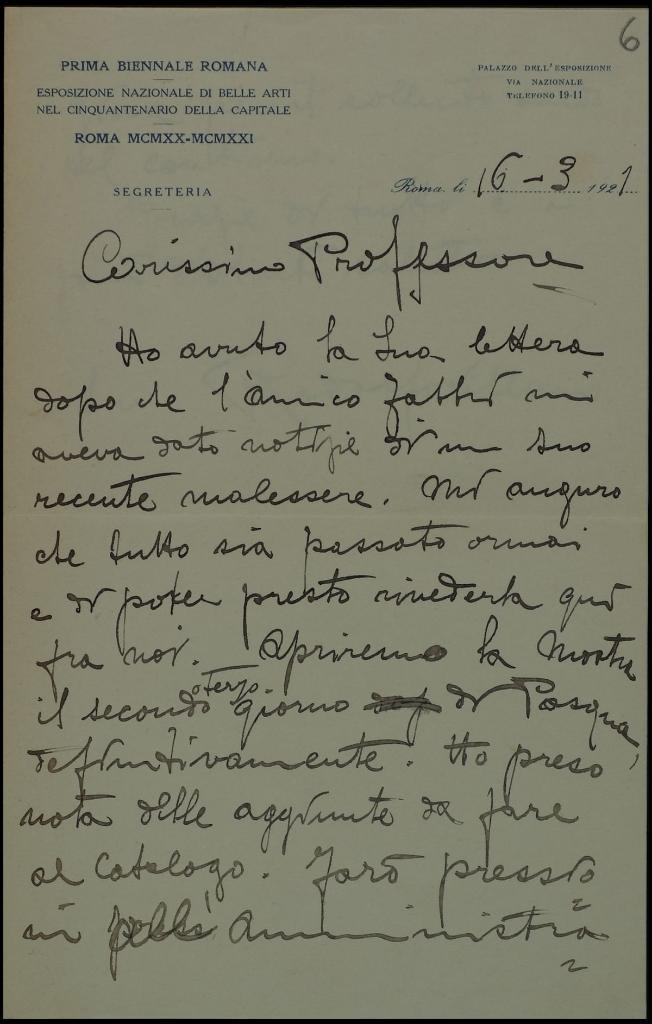 6
PRIMA BIENNALE ROMANA
ESPOSIZIONE NAZIONALE DI BELLE ARTI
NEL CINQUANTENARIO DELLA CAPITALE
ROMA MCMXX-MCMXXI
SEGRETERIA
PALAZZO DELL'ESPOSIZIONE
VIA NAZIONALE
TELEFONO 19-11
Roma li 16-3 1921
Carissimo Professore
Ho avuto la Sua lettera
dopo che l'amico Fabbri mi
aveva dato notizie di un suo
recente malessere. Mi auguro
che tutto sia passato ormai
e di poter presto rivederla qui
fra noi. Apriremo la Mostra
il secondo o Terzo giorno di Pasqua,
definitivamente. Ho preso
nota delle aggiunte da fare
al Catalogo. Farò pressio
ni amministra